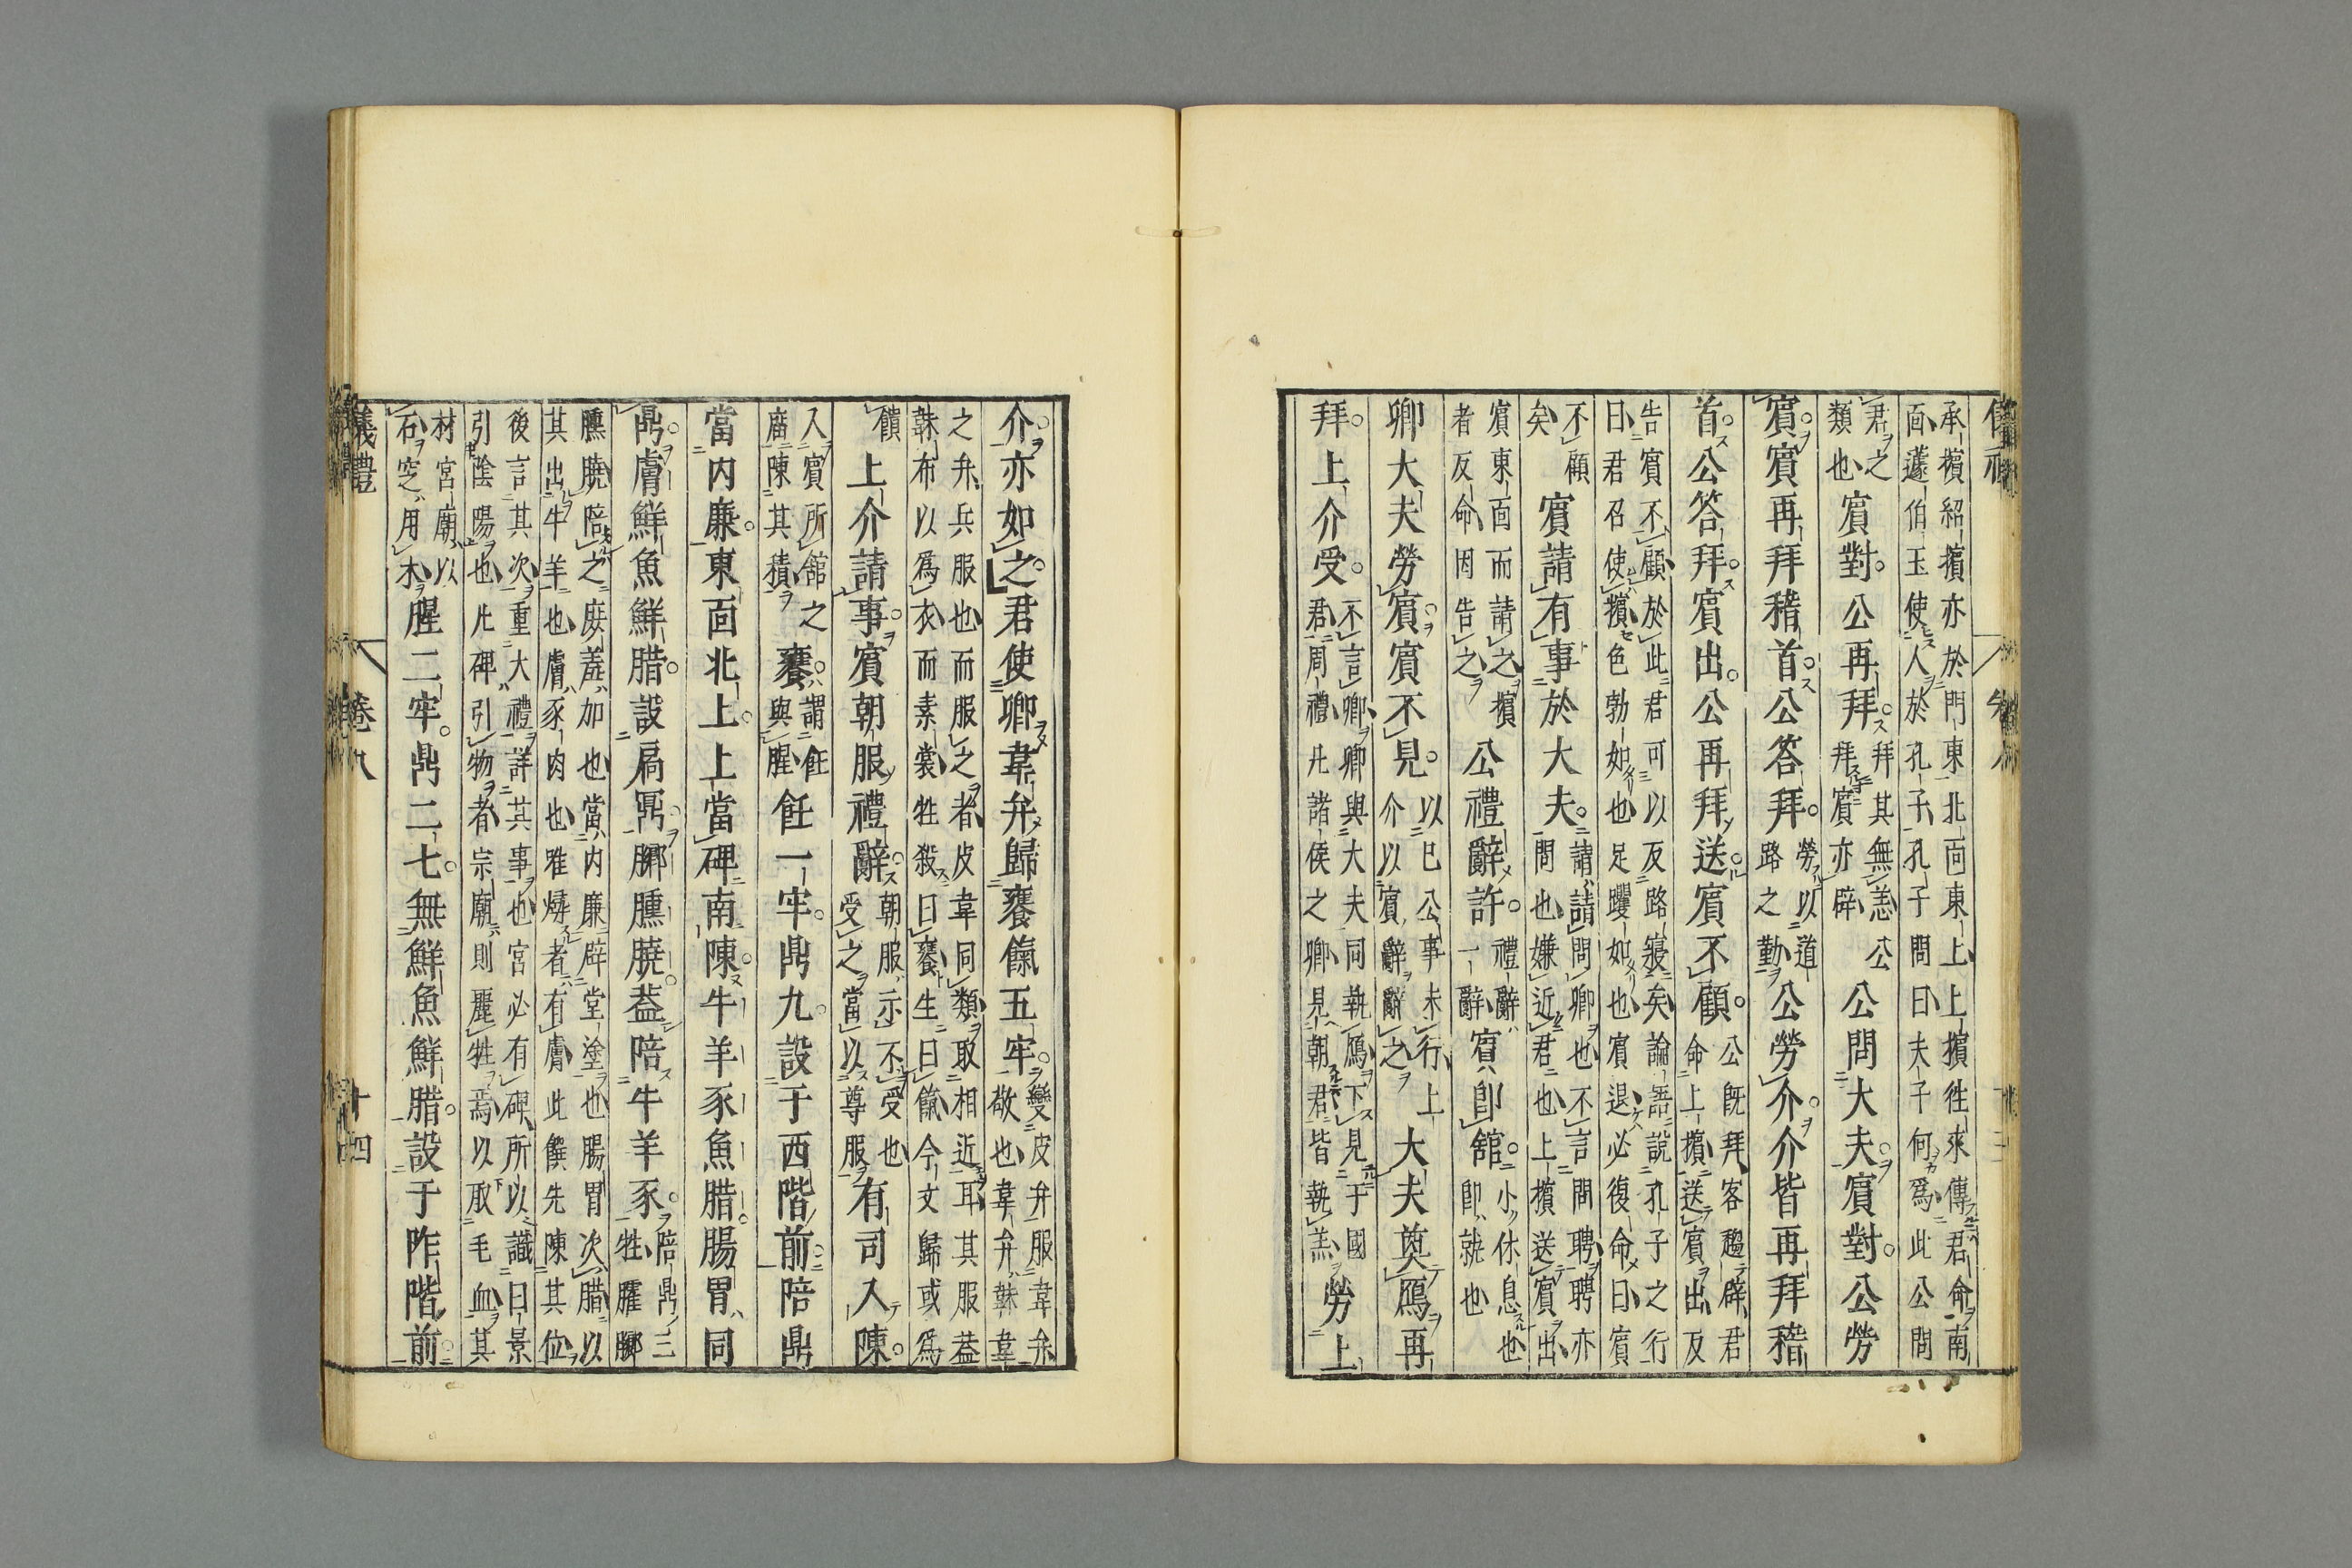 承擯紹擯亦於門東北面東上上擯往來傳君命南
面蘧伯玉使人於孔子孔子問曰夫子何爲此公問
君之類也賓對公再拜拜其無恙公拜賓亦辟公問大夫賓對公勞
賓賓再拜稽首公答拜勞以道路之勤公勞介介皆再拜稽
首公答拜賓出公再拜送賓不顧公既拜客趨辟君命上擯送賓出反
告賓不顧於此君可以反路寢矣論語說孔子之行
曰君召使擯色勃如也足躩如也賓退必復命曰賓
不顧矣賓請有事於大夫請請問卿也不言問聘聘亦問也嫌近君也上擯送賓出
賓東面而請之擯者反命因告之公禮辭許禮辭一辭賓即館小休息也即就也
卿大夫勞賓賓不見以已公事未行上介以賓辭辭之大夫奠鴈再
拜上介受不言卿卿與大夫同執鴈下見于國君周禮凡諸侯之卿見朝君皆執羔勞上
介亦如之君使卿韋弁歸饔餼五牢變皮弁服韋弁敬也韋弁韎韋
之弁兵服也而服之者皮韋同類取相近耳其服蓋
韎布以爲衣而素裳牲殺曰饔生曰餼今文歸或爲
饋上介請事賓朝服禮辭朝服示不受也受之當以尊服有司入陳
入賓所館之廟陳其積饔謂飪與腥飪一牢鼎九設于西階前陪鼎
當內廉東面北上上當碑南陳牛羊豕魚腊腸胃同
鼎膚鮮魚鮮腊設扃鼏膷臐膮蓋陪牛羊豕陪鼎三牲臛膷
臐膮陪之庶羞加也當內廉辟堂塗也腸胃次腊以
其出牛羊也膚豕肉也唯燖者有膚此饌先陳其位
後言其次重大禮詳其事也宮必有碑所以識日景
引陰陽也凡碑引物者宗廟則麗牲焉以取毛血其
材宮廟以石窆用木腥二牢鼎二七無鮮魚鮮腊設于阼階前
儀禮 卷八 十四